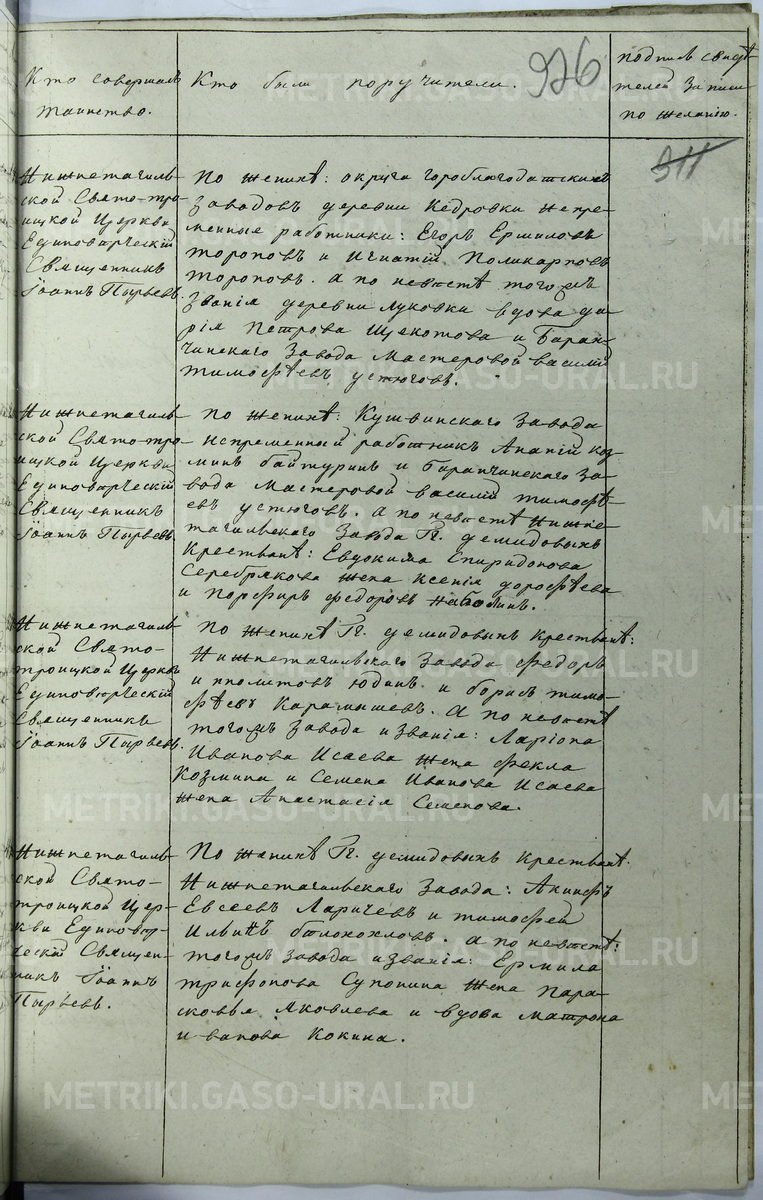 Кто совершалъ
таинство.
Кто были поручители.
926
подпись свидѣ
телей записи
по желанію.
311
Нижнетагиль-
ской Свято-тро-
ицкой Церкви
Единоверческій
Священникъ
Іоаннъ Пырьевъ.
По женихѣ: округа гороблагодатскихъ
заводовъ деревни Кедровки непре-
менные работники: Егоръ Ермиловъ
тороповъ и Игнатій Поликарповъ
тороповъ. а по невестѣ тогожъ
званія деревни луковки вдова да-
рія Петрова Щекотова и Баран-
чинскаго Завода Мастеровой василій
тимофѣевъ устюговъ.
Нижнетагиль-
ской Свято-тро-
ицкой Церкви
Единоверческій
Священникъ
Іоаннъ Пырьевъ.
По женихѣ: Кушвинскаго Завода
непременный работникъ Ананій коз-
минъ байтуринъ и Баранчинскаго За-
вода Мастеровой василій тимофѣ-
евъ устюговъ. а по невестѣ Нижне-
тагильскаго Завода Гг. демидовыхъ
крестьянѣ: Евдокима Спиридонова
Серебрякова жена ксенія дорофѣева
и Порфиръ федоровъ
Нижнетагиль-
ской Свято-
троицкой Церкви
Единоверческій
Священникъ
Іоаннъ Пырьевъ.
По женихѣ Гг. демидовыхъ крестьянѣ:
Нижнетагильскаго Завода федоръ
иполитовъ юдинъ и борисъ тимо-
фѣевъ Карамышевъ. А по невестѣ
тогожъ завода и званія: Ларіона
Иванова Исаева жена фекла
Козмина и Семена Иванова Исаева
жена Анастасія Семенова.
Нижнетагиль-
ской Свято-
троицкой Цер-
кви Единовер-
ческій Священ-
никъ Іоаннъ
Пырьевъ.
По женихѣ Гг. демидовыхъ крестьянѣ:
Нижнетагильскаго Завода: Акинфъ
Евсеевъ Ларичевъ и тимофей
Ильинъ белохохловъ. а по невестѣ:
тогожъ завода и званія: Ермила
трифонова Супонина жена пара-
сковья Яковлева и вдова матрона
иванова Кокина.
METRIKI.GASO-URAL.RU
METRIKI.GASO-URAL.RU
METRIKI.GASO-URAL.RU
METRIKI.GASO-URAL.RU
METRIKI.GASO-URAL.RU
METRIKI.GASO-URAL.RU
METRIKI.GASO-URAL.RU
METRI
METRI
METRI
METRI
METRI
METRI
METRI